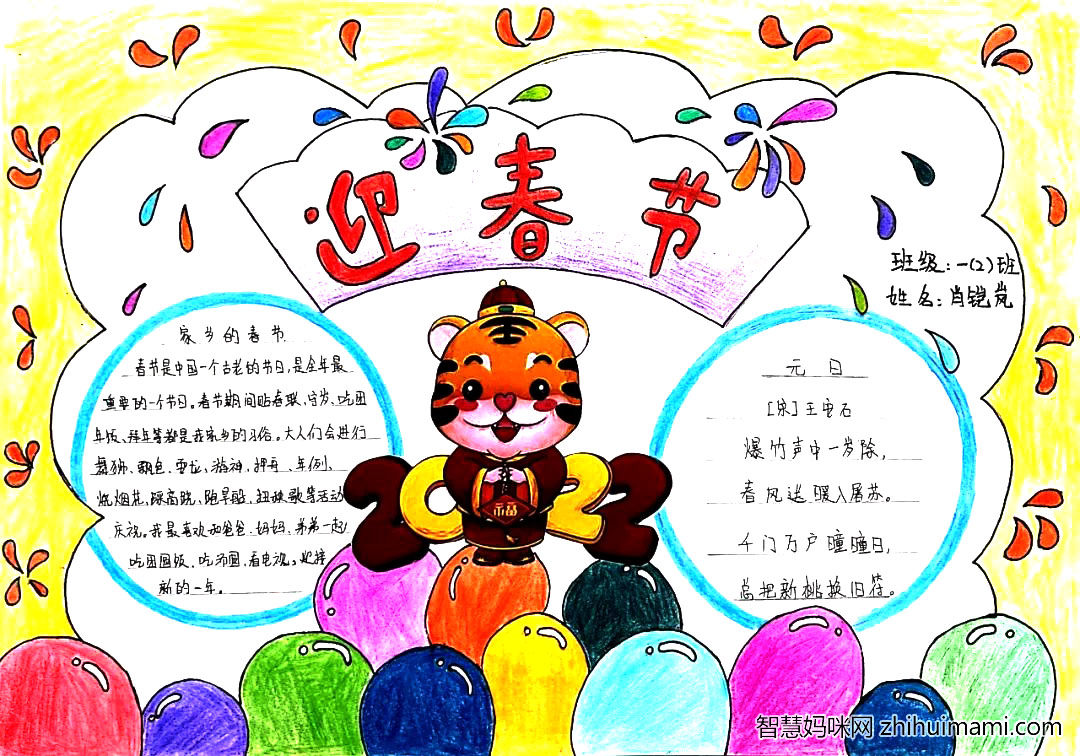 迎春节
班级:一(2)班
姓名:肖铠岚
家乡的春节
春节是中国一个古老的节日,是全年最
重要的一个节日。春节期间贴春联、守岁、吃团
年饭、拜年等都是我家乡的习俗。大人们会进行
舞狮、飘色、游神、年例、
烧烟花、踩高跷、跑旱船、扭秧歌等活动
庆祝。我最喜欢和爸爸、妈妈、弟弟一起
吃团圆饭、吃汤圆、看电视、迎接
新的一年。
2022
福
元日
[宋]王安石
爆竹声中一岁除,
春风送暖入屠苏。
千门万户瞳瞳日,
总把新桃换旧符。
智慧妈咪网 zhihuimami.com